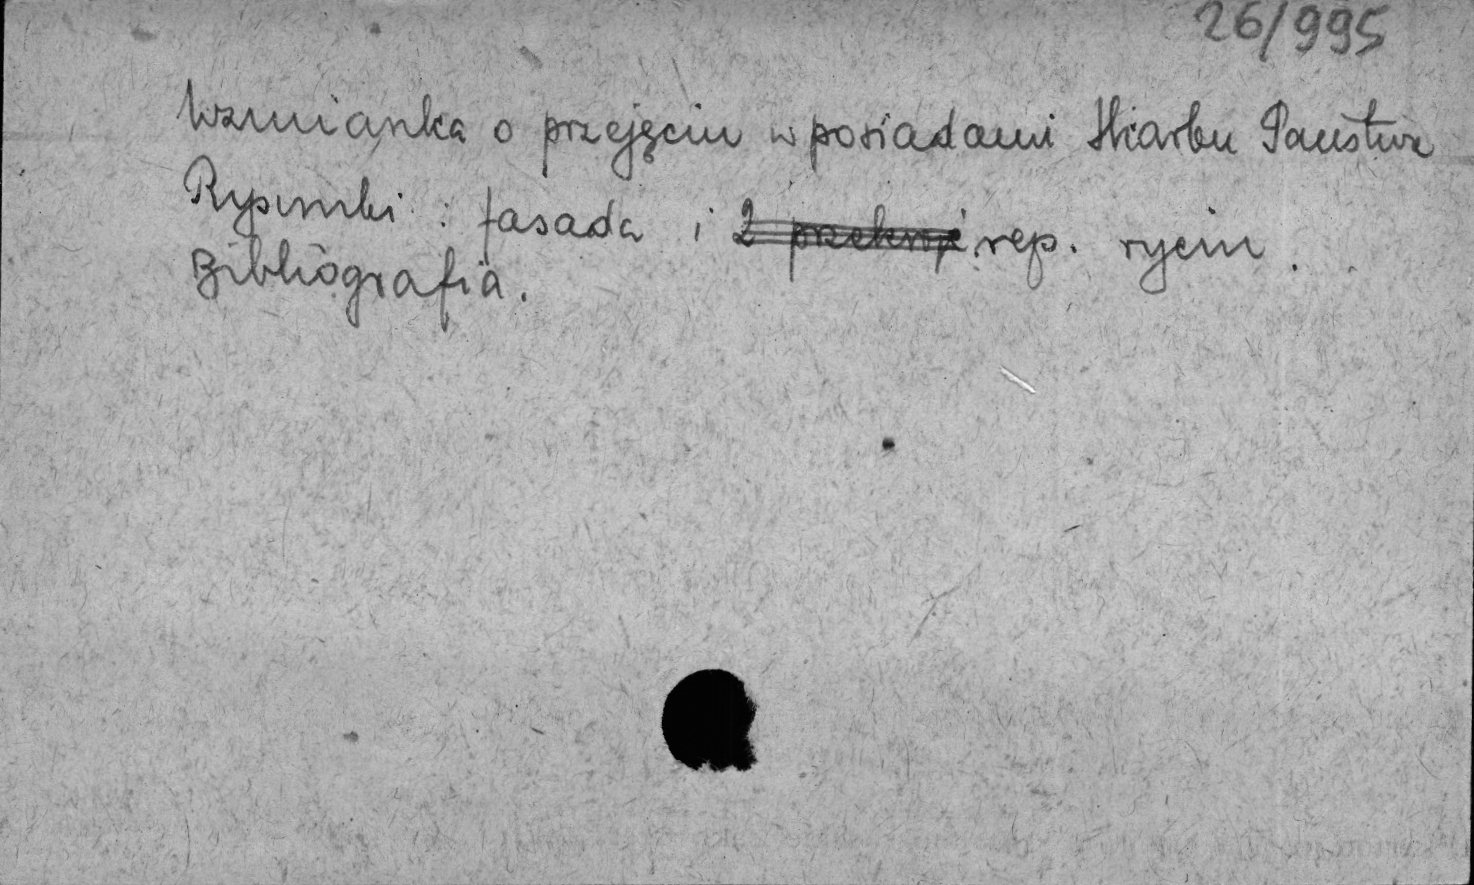 26/995
Wzmianka o przejęciu w posiadanie Skarbu Państwa
Rysunki : fasada i 2 przekroje rep. rycin.
Bibliografia.